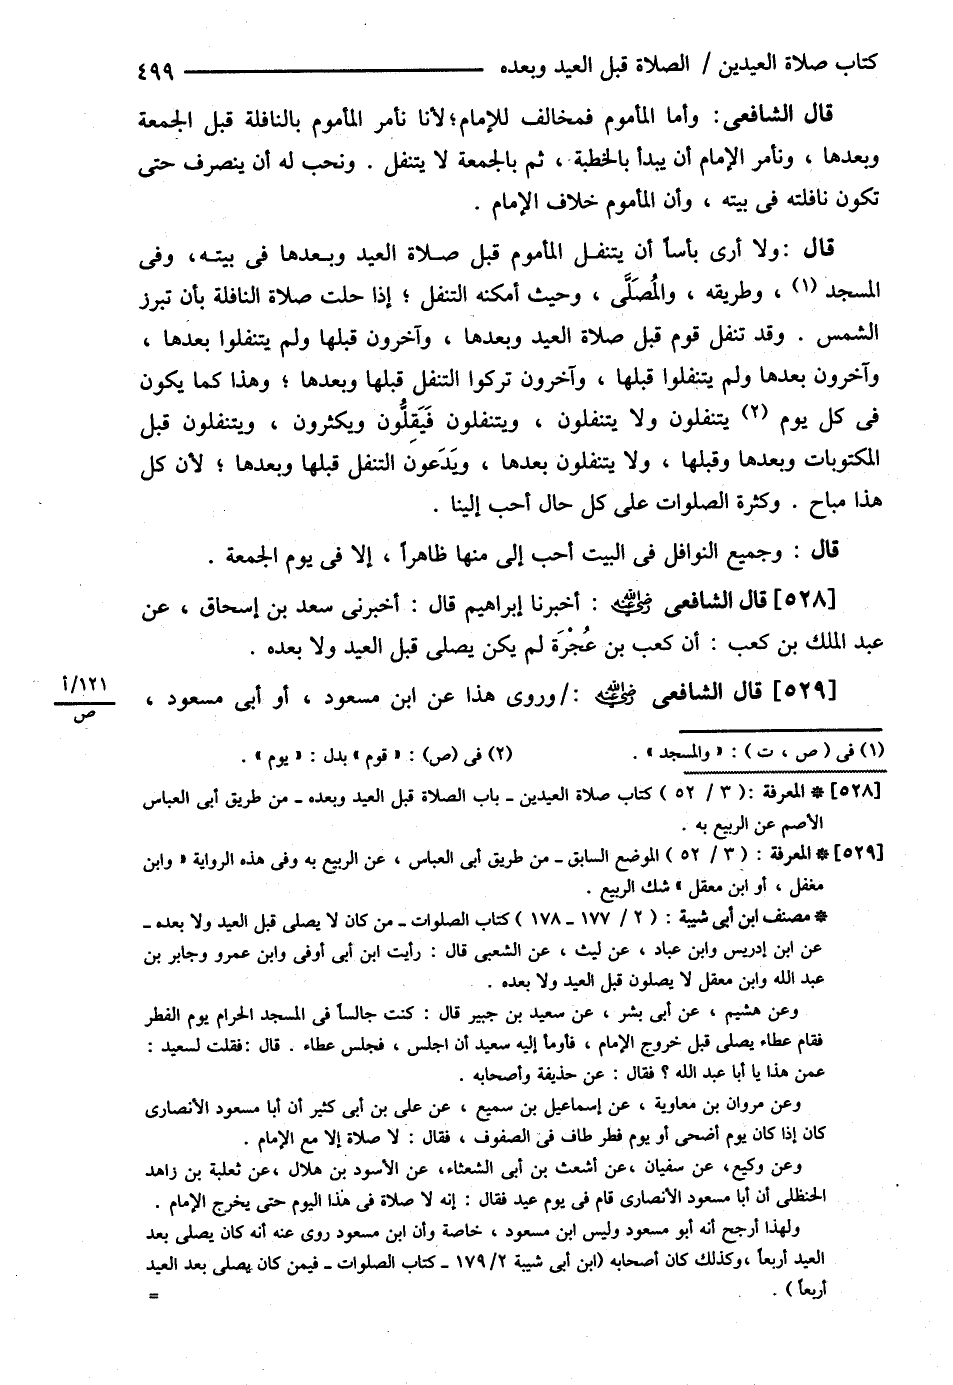 كتاب صلاة العيدين / الصلاة قبل العيد وبعده ـــــــــ ٤٩٩
قال الشافعى : وأما المأموم فمخالف للإمام؛ لأنا نأمر المأموم بالنافلة قبل الجمعة
وبعدها ، ونأمر الإمام أن يبدأ بالخطبة ، ثم بالجمعة لا يتنفل . ونحب له أن ينصرف حتى
تكون نافلته فى بيته ، وأن المأموم خلاف الإمام .
قال : ولا أرى بأساً أن يتنفل المأموم قبل صلاة العيد وبعدها فى بيته، وفى
المسجد (١) ، وطريقه ، والمُصَلَّى ، وحيث أمكنه التنفل ؛ إذا حلت صلاة النافلة بأن تبرز
الشمس . وقد تنفل قوم قبل صلاة العيد وبعدها ، وآخرون قبلها ولم يتنفلوا بعدها ،
وآخرون بعدها ولم يتنفلوا قبلها ، وآخرون تركوا التنفل قبلها وبعدها ؛ وهذا كما يكون
فى كل يوم (٢) يتنفلون ولا يتنفلون ، ويتنفلون فَيَقِلُّون ويكثرون ، ويتنفلون قبل
المكتوبات وبعدها وقبلها ، ولا يتنفلون بعدها ، ويَدَعون التنفل قبلها وبعدها ؛ لأن كل
هذا مباح . وكثرة الصلوات على كل حال أحب إلينا .
قال : وجميع النوافل فى البيت أحب إلى منها ظاهراً ، إلا فى يوم الجمعة .
[٥٢٨] قال الشافعى رضي الله عنه : أخبرنا إبراهيم قال : أخبرنى سعد بن إسحاق ، عن
عبد الملك بن كعب : أن كعب بن عُجْرَة لم يكن يصلى قبل العيد ولا بعده .
[٥٢٩] قال الشافعى رضي الله عنه :/ وروى هذا عن ابن مسعود ، أو أبى مسعود ،
١٢١/أ
ص
(١) فى ( ص ، ت ) : « والمسجد » . (٢) فى (ص) : « قوم » بدل : « يوم » .
[٥٢٨] * المعرفة : ( ٣ / ٥٢ ) كتاب صلاة العيدين ـ باب الصلاة قبل العيد وبعده ـ من طريق أبى العباس
الأصم عن الربيع به .
[٥٢٩] * المعرفة : ( ٣ / ٥٢ ) الموضع السابق ـ من طريق أبى العباس ، عن الربيع به وفى هذه الرواية « وابن
مغفل ، أو ابن معقل » شك الربيع .
* مصنف ابن أبى شيبة : ( ٢ / ١٧٧ ـ ١٧٨ ) كتاب الصلوات ـ من كان لا يصلى قبل العيد ولا بعده ـ
عن ابن إدريس وابن عباد ، عن ليث ، عن الشعبى قال : رأيت ابن أبى أوفى وابن عمرو وجابر بن
عبد الله وابن معقل لا يصلون قبل العيد ولا بعده .
وعن هشيم ، عن أبى بشر ، عن سعيد بن جبير قال : كنت جالساً فى المسجد الحرام يوم الفطر
فقام عطاء يصلى قبل خروج الإمام ، فأومأ إليه سعيد أن اجلس ، فجلس عطاء . قال : فقلت لسعيد :
عمن هذا يا أبا عبد الله ؟ فقال : عن حذيفة وأصحابه .
وعن مروان بن معاوية ، عن إسماعيل بن سميع ، عن على بن أبى كثير أن أبا مسعود الأنصارى
كان إذا كان يوم أضحى أو يوم فطر طاف فى الصفوف ، فقال : لا صلاة إلا مع الإمام .
وعن وكيع، عن سفيان ،عن أشعث بن أبى الشعثاء، عن الأسود بن هلال ،عن ثعلبة بن زاهد
الحنظلى أن أبا مسعود الأنصارى قام فى يوم عيد فقال : إنه لا صلاة فى هذا اليوم حتى يخرج الإمام .
ولهذا أرجح أنه أبو مسعود وليس ابن مسعود ، خاصة وأن ابن مسعود روى عنه أنه كان يصلى بعد
العيد أربعاً ،وكذلك كان أصحابه (ابن أبى شيبة ٢/ ١٧٩ ـ كتاب الصلوات ـ فيمن كان يصلى بعد العيد
أربعاً ) . =